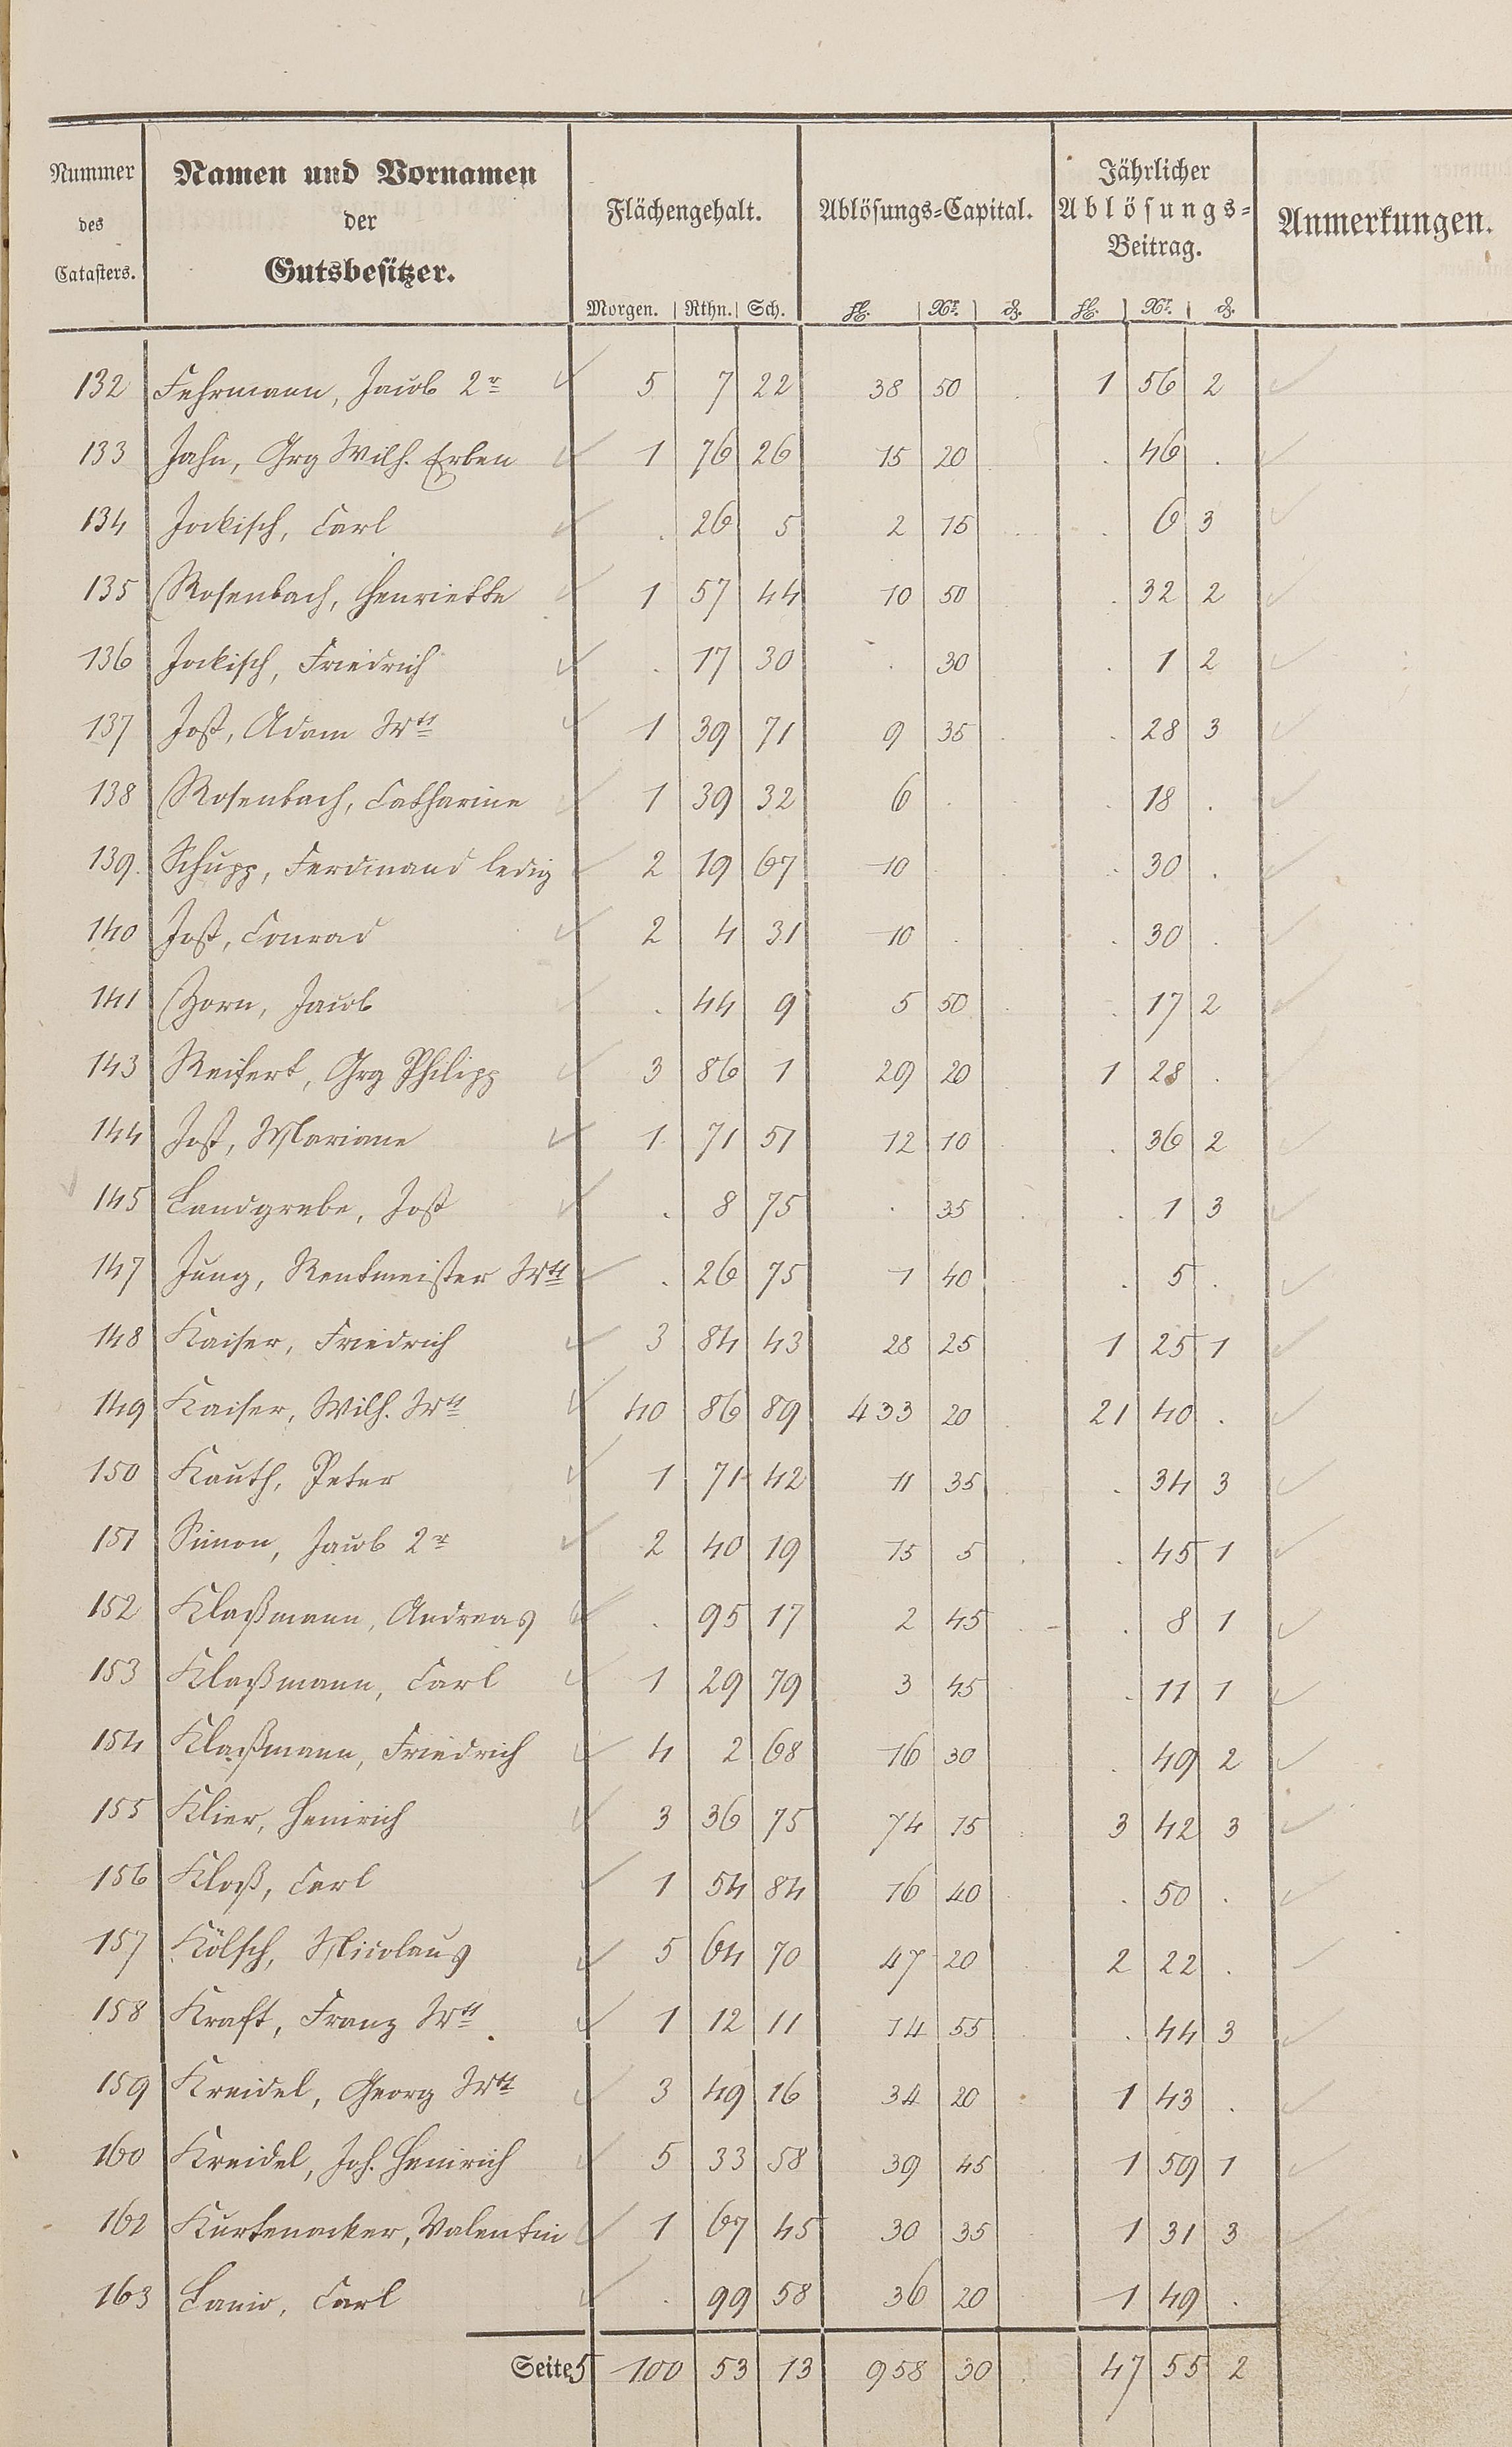 Nummer des Catasters. | Namen und Vornamen der Gutsbesitzer. | Flächengehalt. | Ablösungs-Capital. | Jährlicher Ablösungs-Beitrag. | Anmerkungen.
Morgen. | Rthn. | Sch. | fl. | Xr. | ₰. | fl. | Xr. | ₰.
132 Fehrmann, Jacob 2r 5 7 22 38 50 . 1 56 2
133 Jahn, Grg Wilh. Erben 1 76 26 15 20 . . 46 .
134 Jockisch, Carl . 26 5 2 15 . . 6 3
135 Rosenbach, Henriette 1 57 44 10 50 . 32 2
136 Jockisch, Friedrich . 17 30 . 30 . 1 2
137 Jost, Adam Wtt 1 39 71 9 35 . . 28 3
138 Rosenbach, Catharine 1 39 32 6 . . . 18 .
139. Schupp, Ferdinand ledig 2 19 67 10 . . . 30 .
140 Jost, Conrad 2 4 31 10 . . . 30 .
141 Zorn, Jacob . 44 9 5 50 . . 17 2
143 Reifert, Grg Philipp 3 86 1 29 20 1 28 .
144 Jost, Mariane 1 71 51 12 10 . . 36 2
145 Landgrebe, Jost . 8 75 . 35 . . 1 3
147 Jung, Rentmeister Wtt . 26 75 1 40 . . 5 .
148 Kaiser, Friedrich 3 84 43 28 25 . 1 25 1
149 Kaiser, Wilh. Wtt 40 86 89 433 20 . 21 40 .
150 Kauth, Peter 1 71 42 11 35 . . 34 3
151 Simon, Jacob 2r 2 40 19 15 5 . . 45 1
152 Klaßmann, Andreas . 95 17 2 45 . . 8 1
153 Klaßmann, Carl 1 29 79 3 45 . . 11 1
154 Klaßmann, Friedrich 4 2 68 16 30 . . 49 2
155 Klier, Heinrich 3 36 75 74 15 . 3 42 3
156 Kloß, Carl 1 54 84 16 40 . . 50 .
157 Kölsch, Nicolaus 5 64 70 47 20 . 2 22 .
158 Kraft, Franz Wtt 1 12 11 14 55 . . 44 3
159 Kreidel, Georg Wtt 3 49 16 34 20 . 1 43 .
160 Kreidel, Joh. Heinrich 5 33 58 39 45 . 1 59 1
162 Kurtenacker, Valentin 1 67 45 30 35 . 1 31 3
163 Lanio, Carl . 99 58 36 20 1 49 .
Seite 5 100 53 13 958 30 . 47 55 2